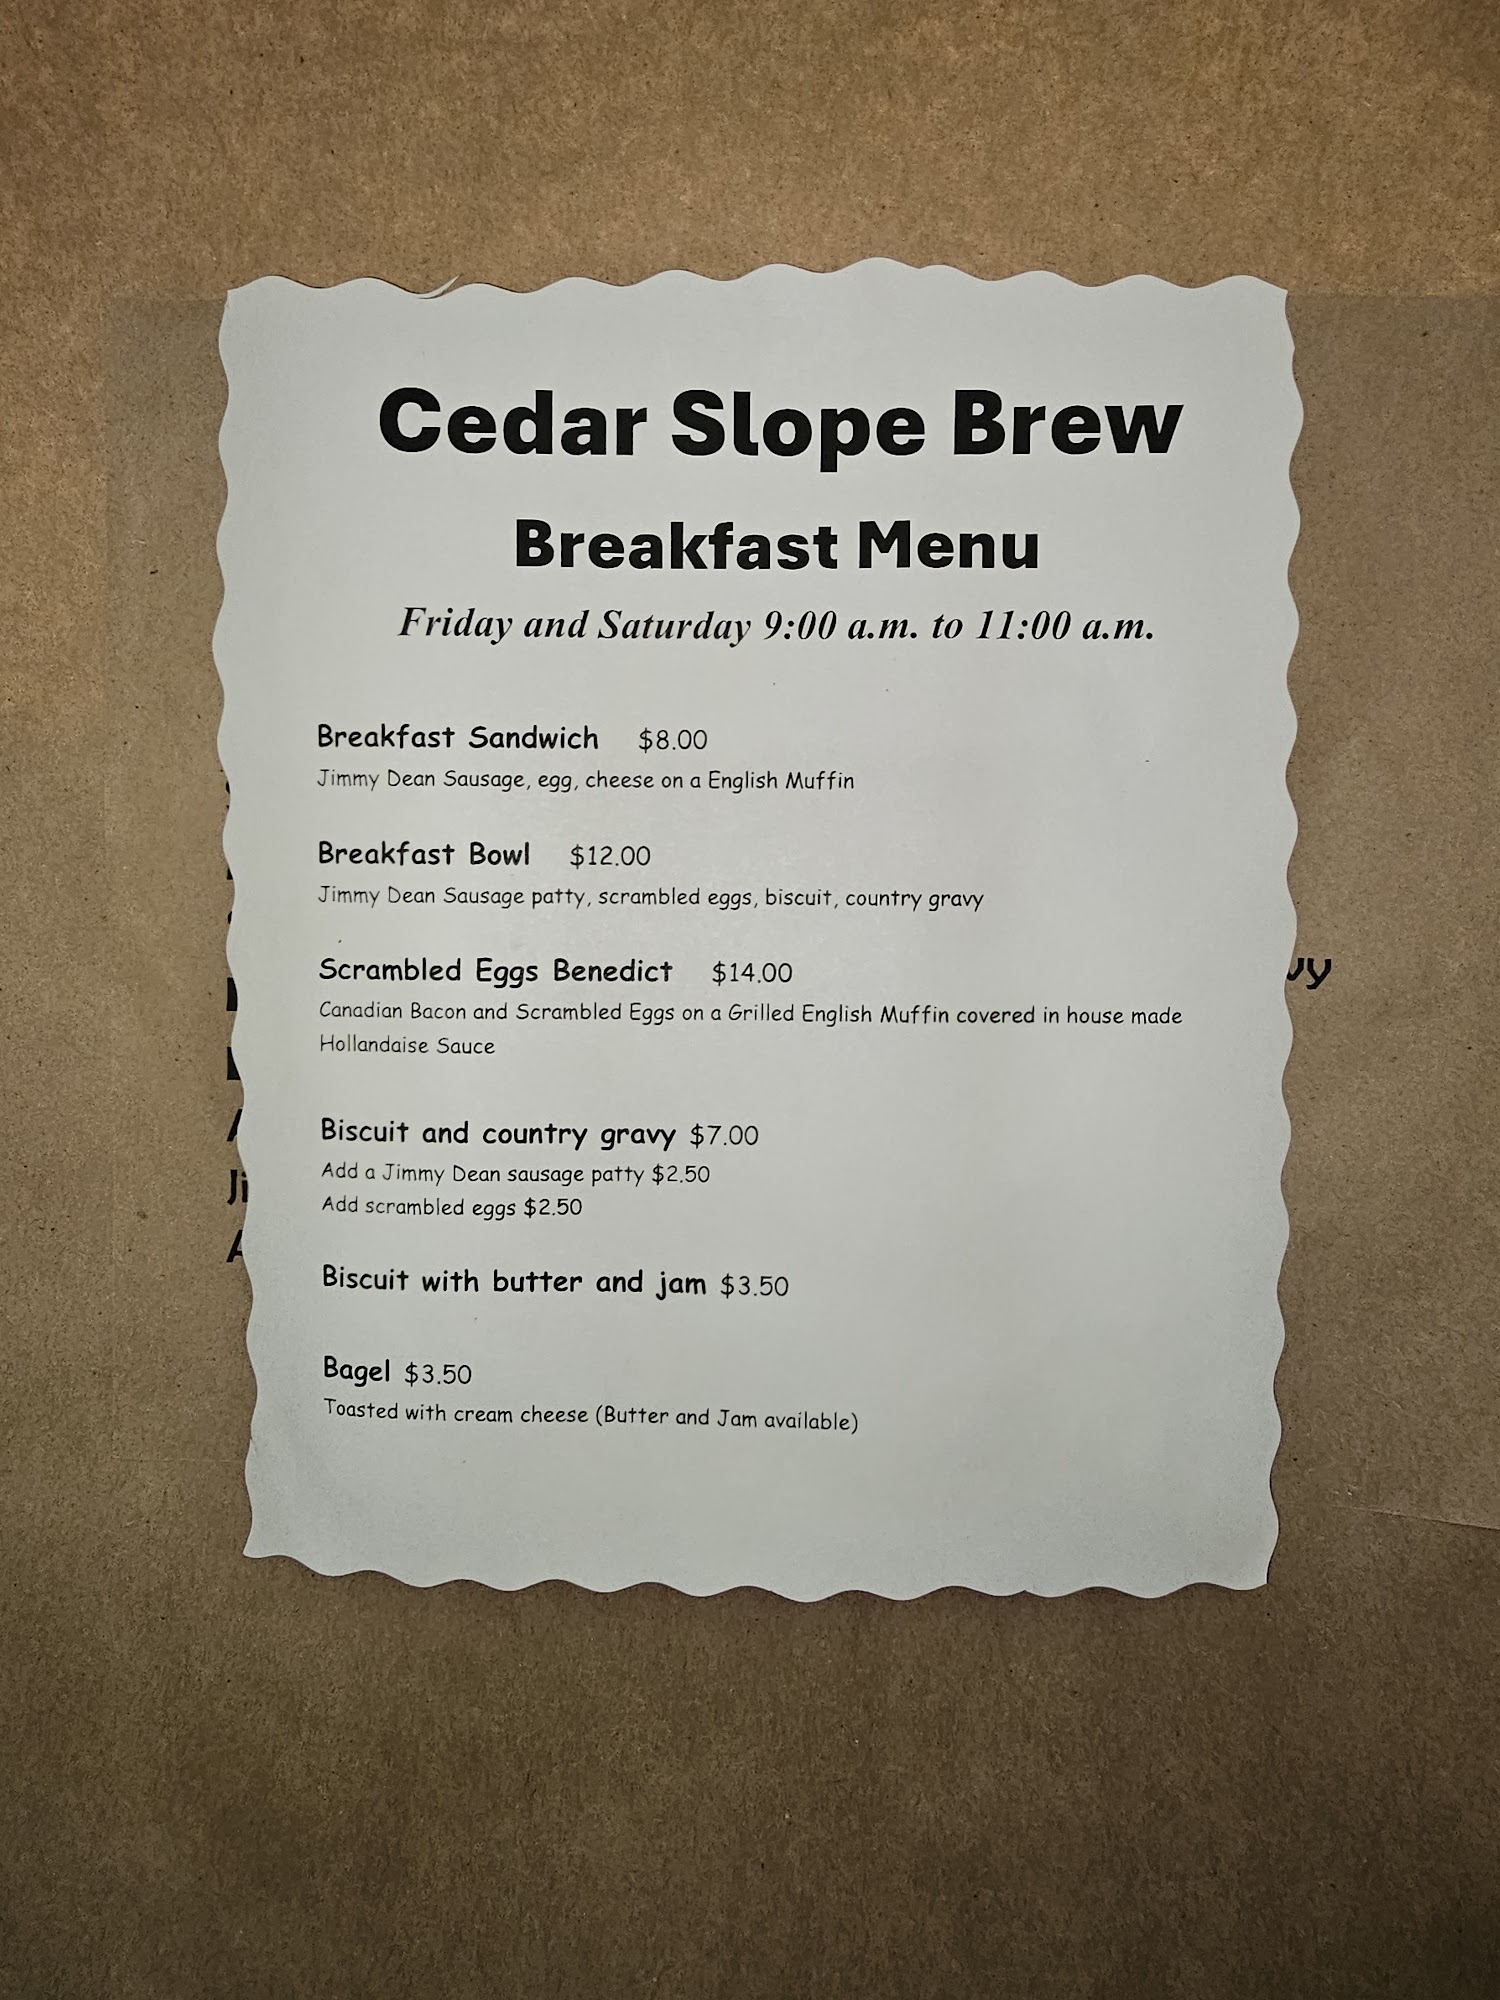 Cedar Slope Brew
Breakfast Menu
Friday and Saturday 9:00 a.m. to 11:00 a.m.
Breakfast Sandwich $8.00
Jimmy Dean Sausage, egg, cheese on a English Muffin
Breakfast Bowl $12.00
Jimmy Dean Sausage patty, scrambled eggs, biscuit, country gravy
Scrambled Eggs Benedict $14.00
Canadian Bacon and Scrambled Eggs on a Grilled English Muffin covered in house made
Hollandaise Sauce
Biscuit and country gravy $7.00
Add a Jimmy Dean sausage patty $2.50
Add scrambled eggs $2.50
Biscuit with butter and jam $3.50
Bagel $3.50
Toasted with cream cheese (Butter and Jam available)